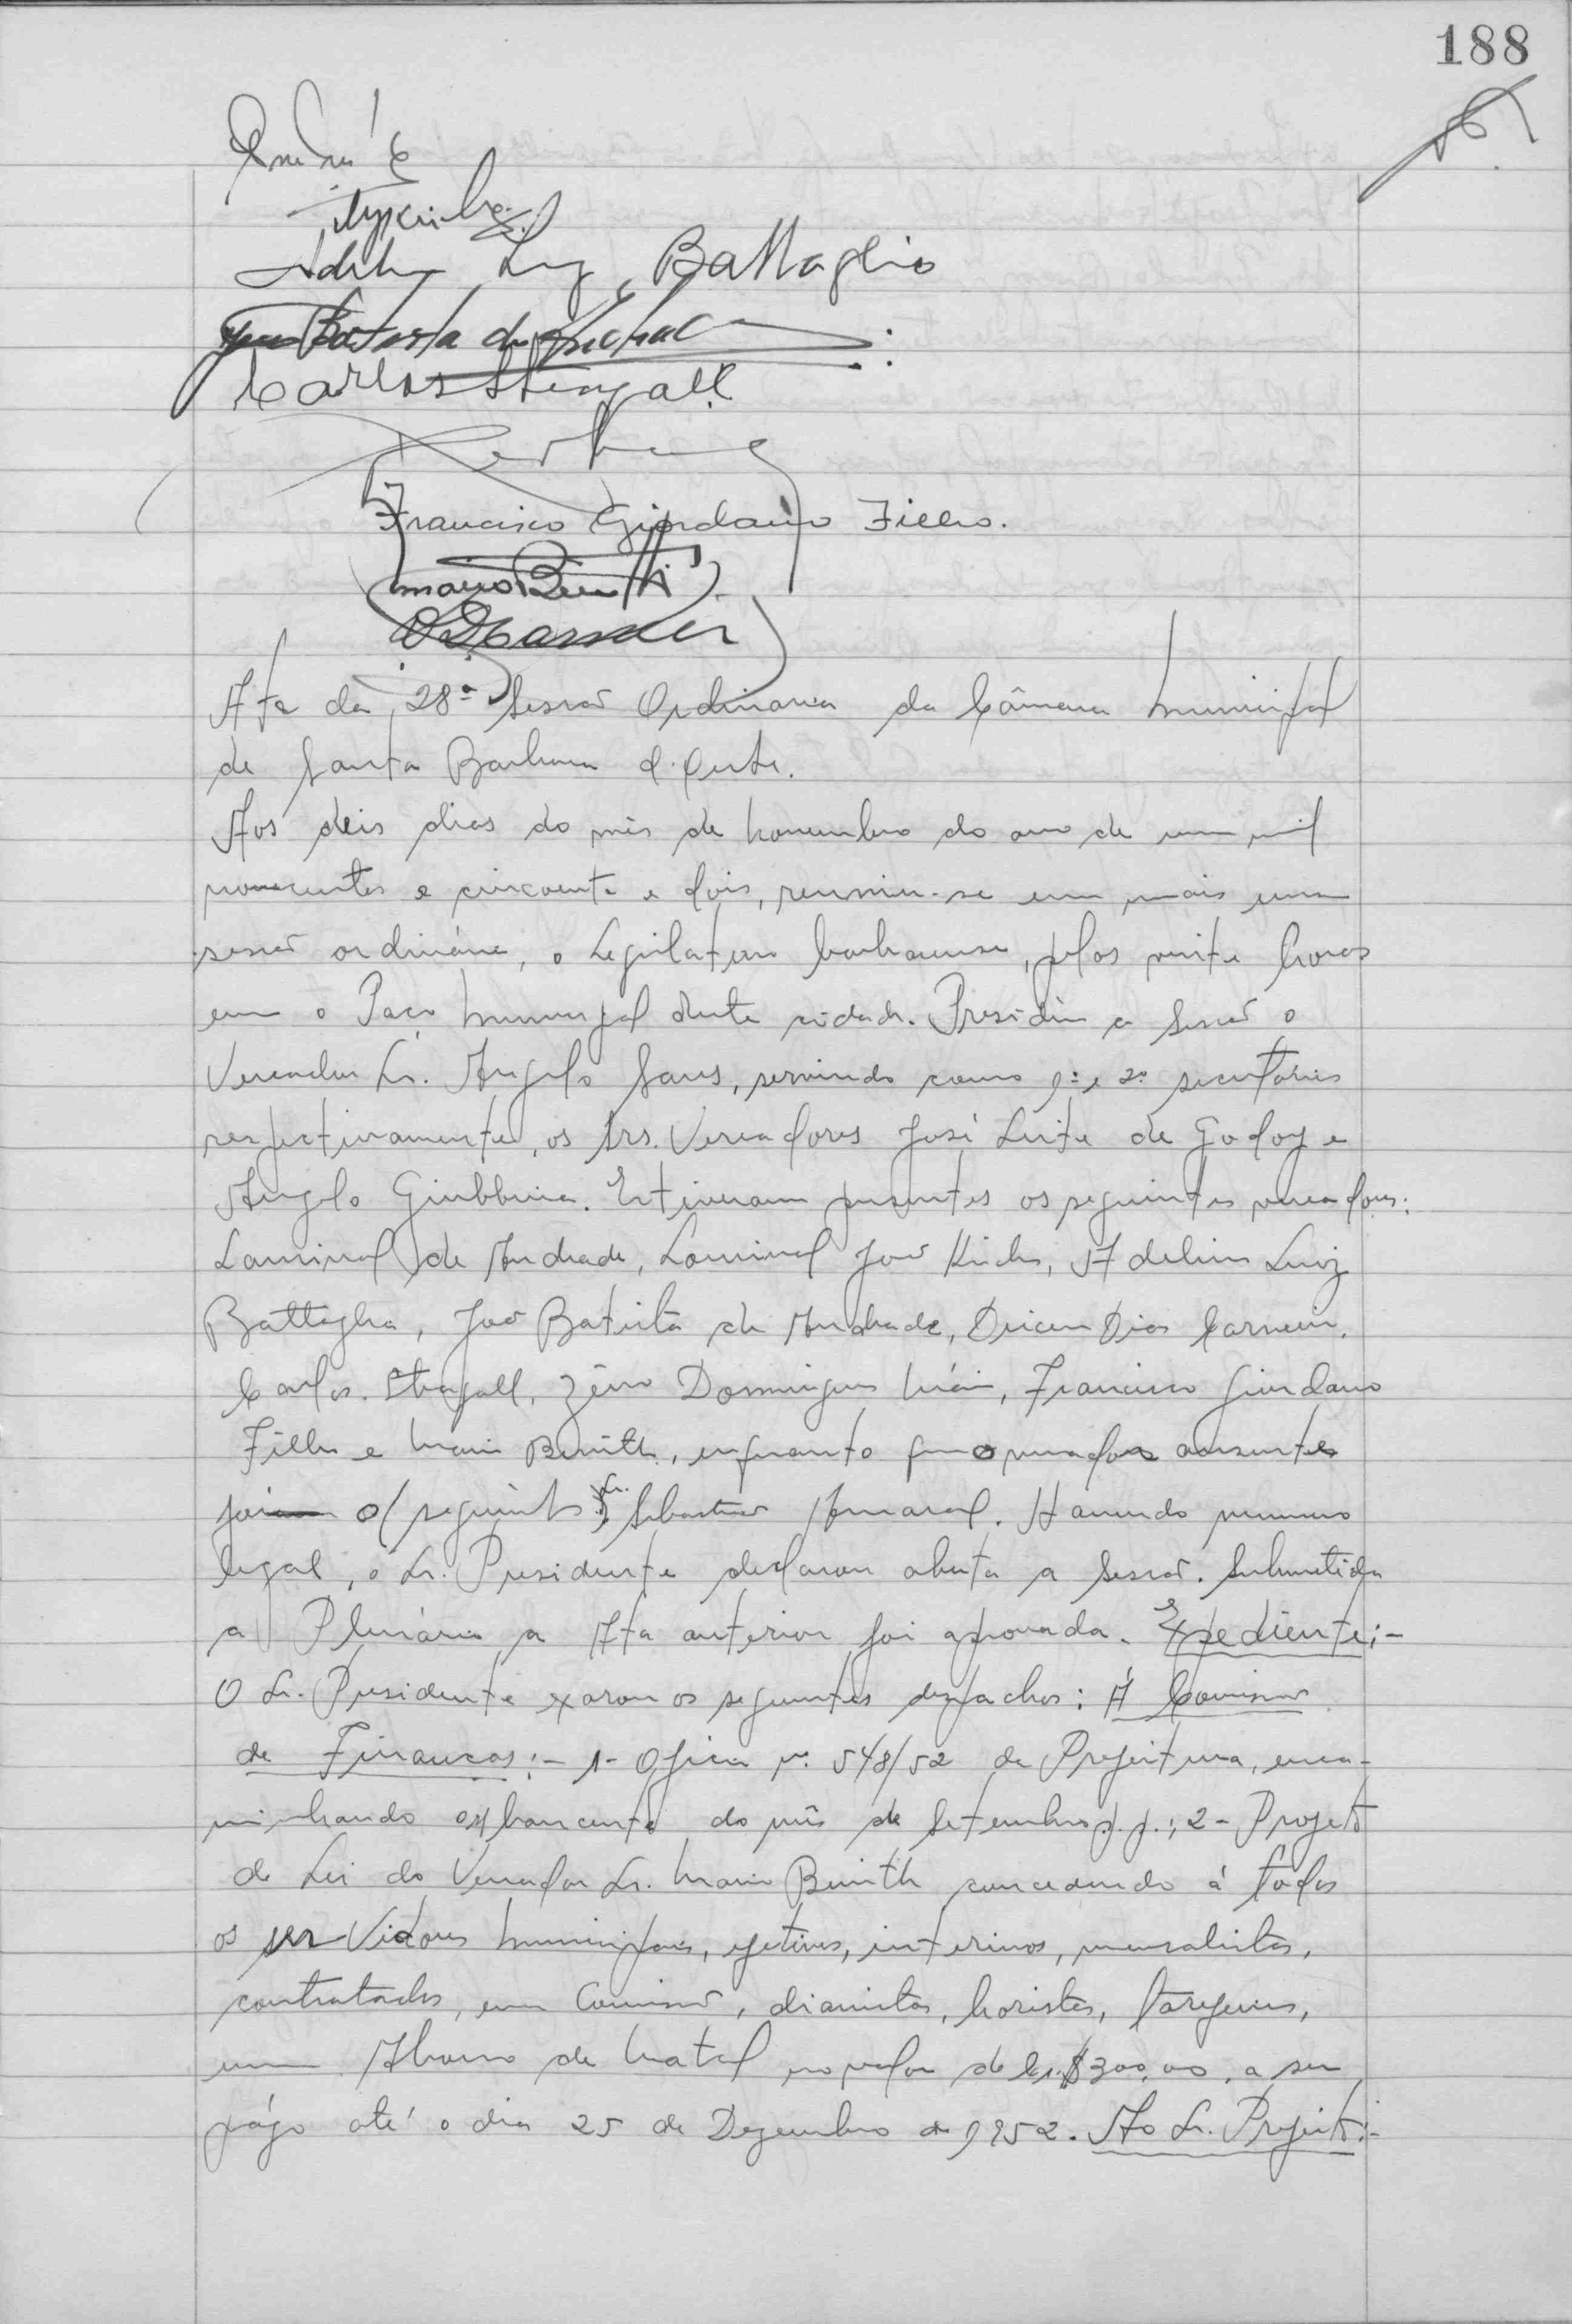 188
Adelino Luiz Battaglia
João Batista de Andrade
Carlos Steagall
Francisco Giordano Filho.
Mario Benitti
Ata da 28ª Sessão Ordinaria da Câmara Municipal
de Santa Barbara d'Oeste.
Aos deis dias do mês de Novembro do ano de um mil
novecentos e cincoenta e dois, reuniu-se em mais uma
sessão ordinária, o Legislativo barbarense, pelas vinte horas
em o Paço Municipal desta cidade. Presidiu a Sessão o
Vereador Sr. Angelo Sans, servindo como 1º e 2º secretários
respectivamente, os Srs. Vereadores José Leite de Godoy e
Angelo Giubbina. Estiveram presentes os seguintes vereadores:
Lourival de Andrade, Lourival João, Adelino Luiz
Battaglia, João Batista de Andrade, Dicen Dias Carneiro,
Carlos Steagall, Zéno Domingues Maia, Francisco Giordano
Filho e Mario Benitti, enquanto que o vereador ausente
foi o seguinte: Sr. Sebastião Amaral. Havendo numero
legal, o Sr. Presidente declarou aberta a Sessão. Submetida
a Plenário a Ata anterior foi aprovada. Expediente:-
O Sr. Presidente exarou os seguintes despachos: À Comissão
de Finanças:- 1- Oficio nº 548/52 da Prefeitura, enca-
minhando o balancete do mês de Setembro p.p.; 2- Projeto
de Lei do Vereador Sr. Mario Benitti concedendo á todos
os servidores municipais, efetivos, interinos, mensalistas,
contratados, em Comissão, diaristas, horistas, tarefeiros,
um Abono de Natal no valor de Cr.$300,00, a ser
págo até o dia 25 de Dezembro de 1952. Ao Sr. Prefeito:-